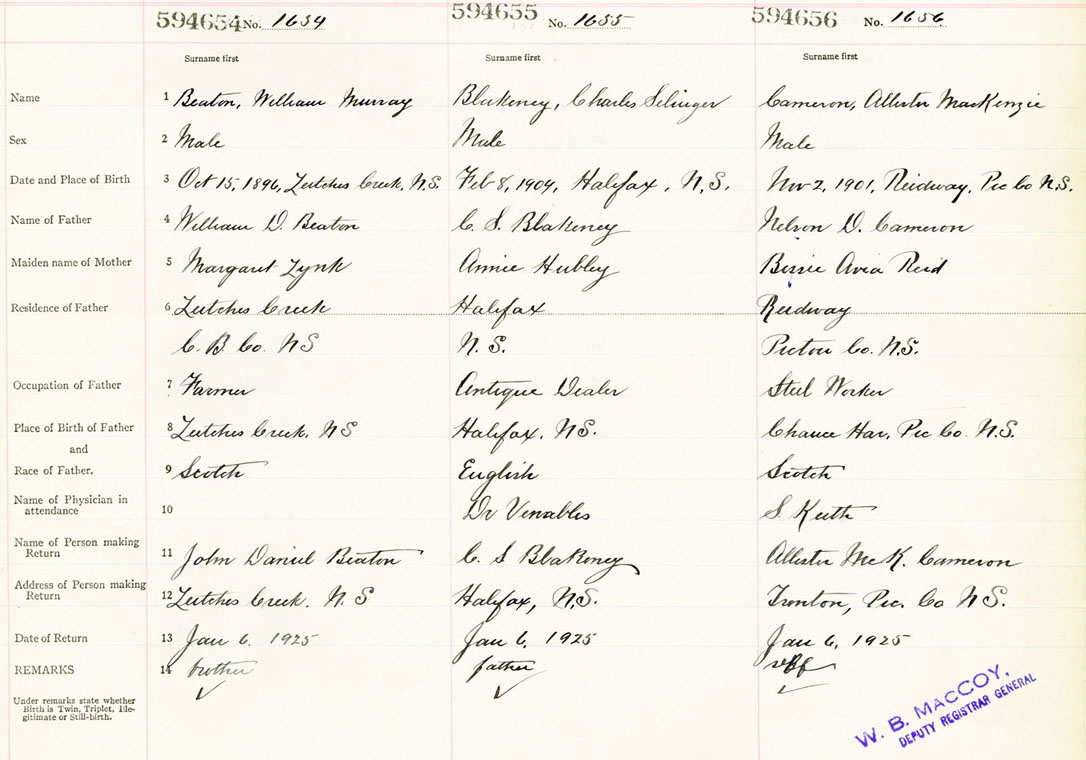 594654 No. 1654 594655 No. 1655 594656 No. 1656
Surname first Surname first Surname first
Name 1 Beaton, William Murray Blakeney, Charles Selinger Cameron, Allister MacKenzie
Sex 2 Male Male Male
Date and Place of Birth 3 Oct 15, 1896, Leitches Creek, N.S. Feb 8, 1904, Halifax, N,S. Nov 2, 1901, Reidway, Pic Co N.S.
Name of Father 4 William D. Beaton C. S. Blakeney Nelson D. Cameron
Maiden name of Mother 5 Margaret Lynk Annie Hubley Bessie Avia Reid
Residence of Father 6 Leitches Creek Halifax Reidway
C. B. Co. NS N. S. Pictou Co. N.S.
Occupation of Father 7 Farmer Antique Dealer Steel Worker
Place of Birth of Father 8 Leitches Creek, NS Halifax. NS. Chance Har, Pic Co. N.S.
and
Race of Father. 9 Scotch English Scotch
Name of Physician in
attendance 10 Dr Venables S. Keith
Name of Person making
Return 11 John Daniel Beaton C. S Blakeney Allister McK. Cameron
Address of Person making
Return 12 Leitches Creek. N. S Halifax, N,S. Trenton, Pic. Co N S.
Date of Return 13 Jan 6, 1925 Jan 6, 1925 Jan 6, 1925
REMARKS 14 brother father
Under remarks state whether
Birth is Twin, Triplet, Ille-
gitimate or Still-birth.
W. B. MACCOY,
DEPUTY REGISTRAR GENERAL